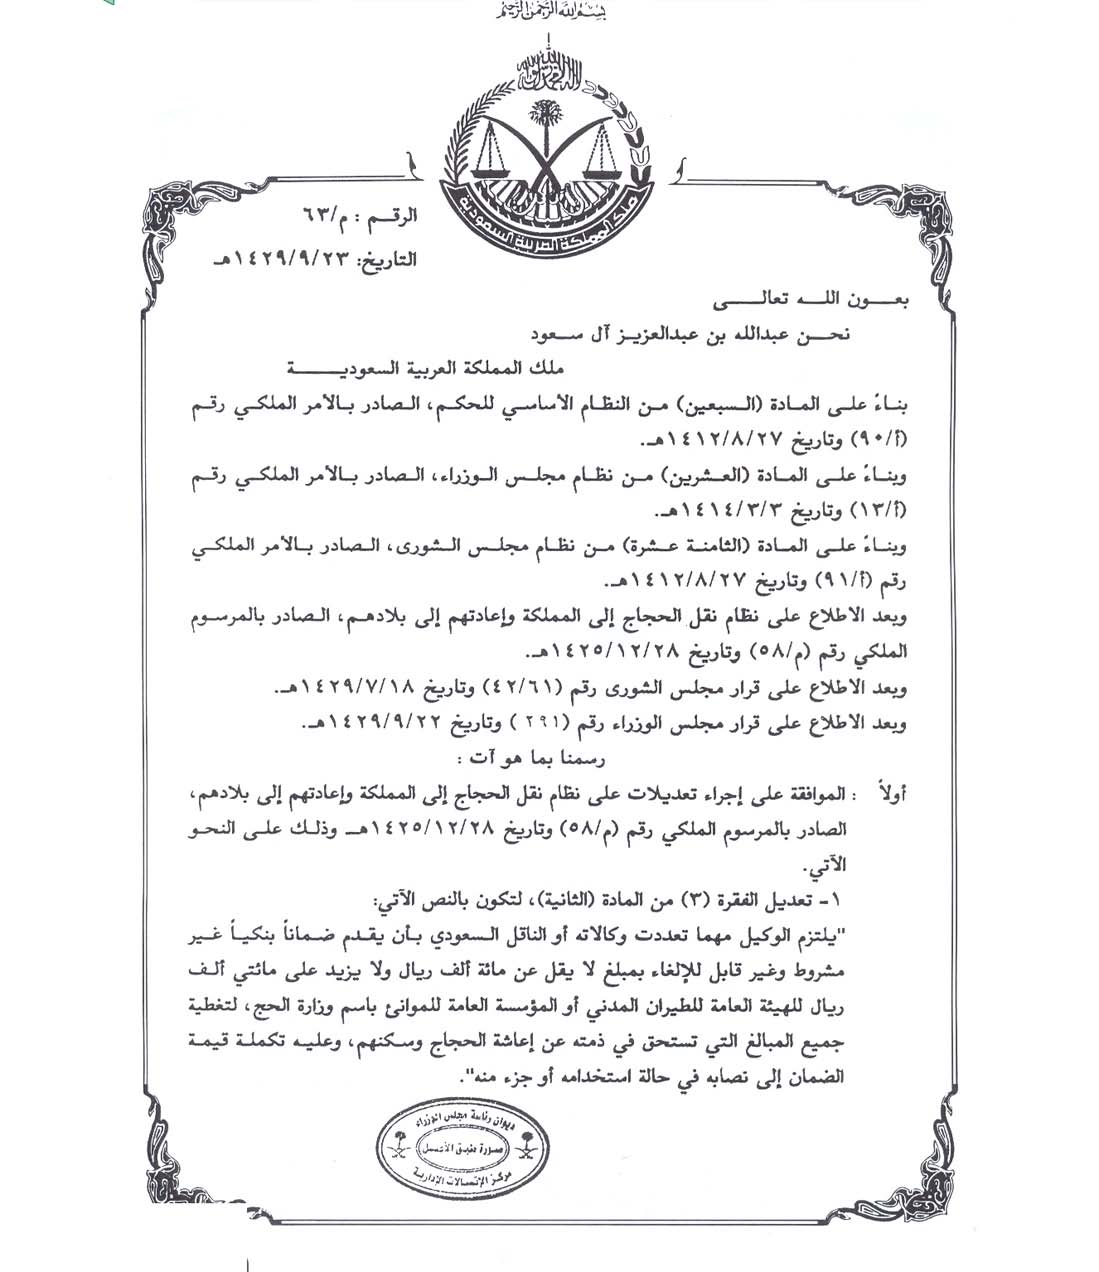 بسم الله الرحمن الرحيم
لا إله إلا الله محمد رسول الله
ملك المملكة العربية السعودية
الرقـم : م/٦٣
التاريخ: ١٤٢٩/٩/٢٣هـ
بعـــون اللـــه تعالـــى
نحـــن عبدالله بن عبدالعزيـز آل سـعود
ملك المملكة العربية السعوديـــــة
بناءً على المـادة (السبعين) مـن النظام الأساسي للحكم، الصـادر بـالأمر الملكي رقـم
(أ/٩٠) وتاريخ ١٤١٢/٨/٢٧هـ.
وبناءً علـى المـادة (العـشرين) مـن نظام مجلس الـوزراء، الـصادر بـالأمر الملكـي رقـم
(أ/١٣) وتاريخ ١٤١٤/٣/٣هـ.
وبنـاءً علـى المـادة (الثامنـة عـشرة) مـن نظـام مجلـس الـشورى، الـصادر بـالأمر الملكـي
رقم (أ/٩١) وتاريخ ١٤١٢/٨/٢٧هـ.
وبعد الاطلاع على نظام نقل الحجاج إلى المملكة وإعادتهم إلى بلادهـم، الـصادر بالمرسـوم
الملكي رقم (م/٥٨) وتاريخ ١٤٢٥/١٢/٢٨هـ.
وبعد الاطلاع على قرار مجلس الشورى رقم (٤٢/٦١) وتاريخ ١٤٢٩/٧/١٨هـ.
وبعد الاطلاع على قرار مجلس الوزراء رقم (٢٩١) وتاريخ ١٤٢٩/٩/٢٢هـ.
رسمنا بما هو آت :
أولاً : الموافقة على إجراء تعديلات على نظام نقل الحجاج إلى المملكة وإعادتهم إلى بلادهم،
الصادر بالمرسوم الملكي رقم (م/٥٨) وتاريخ ١٤٢٥/١٢/٢٨هـ وذلك علـى النحـو
الآتي.
١- تعديل الفقرة (٣) من المادة (الثانية)، لتكون بالنص الآتي:
"يلتزم الوكيل مهما تعددت وكالاته أو الناقل السعودي بـأن يقـدم ضمـاناً بنكيـاً غيـر
مشروط وغير قابل للإلغاء بمبلغ لا يقل عن مائة ألف ريال ولا يزيد على مائتي ألـف
ريال للهيئة العامة للطيران المدني أو المؤسسة العامة للموانئ باسم وزارة الحج، لتغطية
جميع المبالغ التي تستحق في ذمته عن إعاشة الحجاج وسـكنهم، وعليـه تكملـة قيمـة
الضمان إلى نصابه في حالة استخدامه أو جزء منه".
ديوان رئاسة مجلس الوزراء
صورة طبق الأصل
مركز الإتصالات الإدارية